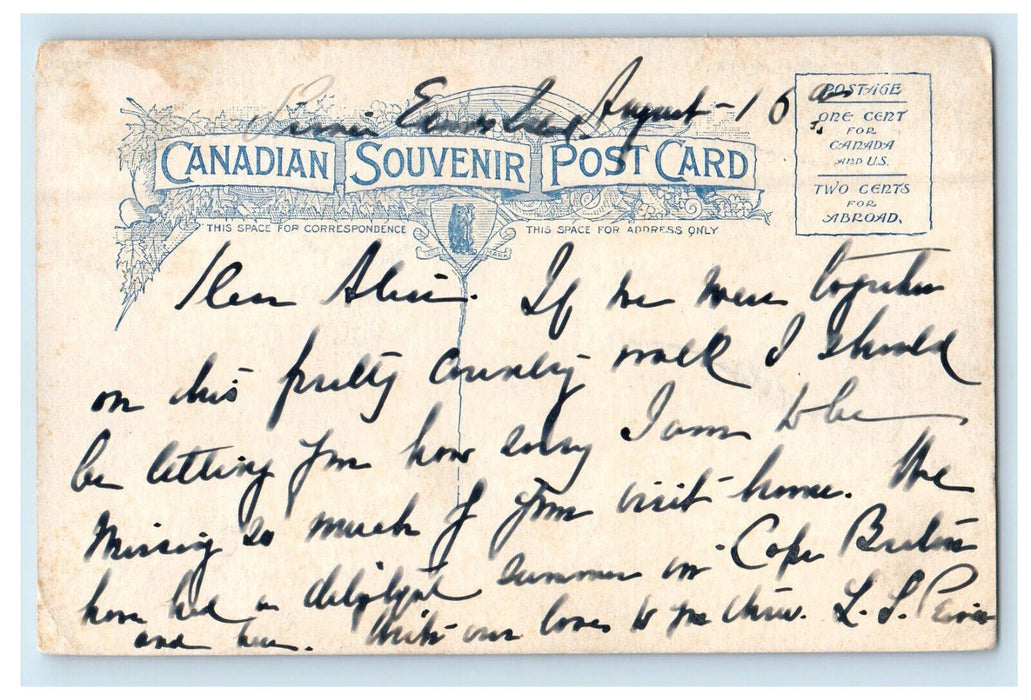 August - 16
CANADIAN SOUVENIR POST CARD
POSTAGE
ONE CENT
FOR
CANADA
AND U.S.
TWO CENTS
FOR
ABROAD.
THIS SPACE FOR CORRESPONDENCE
THIS SPACE FOR ADDRESS ONLY
Dear If we were together
on this pretty country walk I should
be letting you how sorry I am to be
Missing so much of your visit home. We
have had a delightful summer in Cape Breton
and here. With our love to you three. L. S.